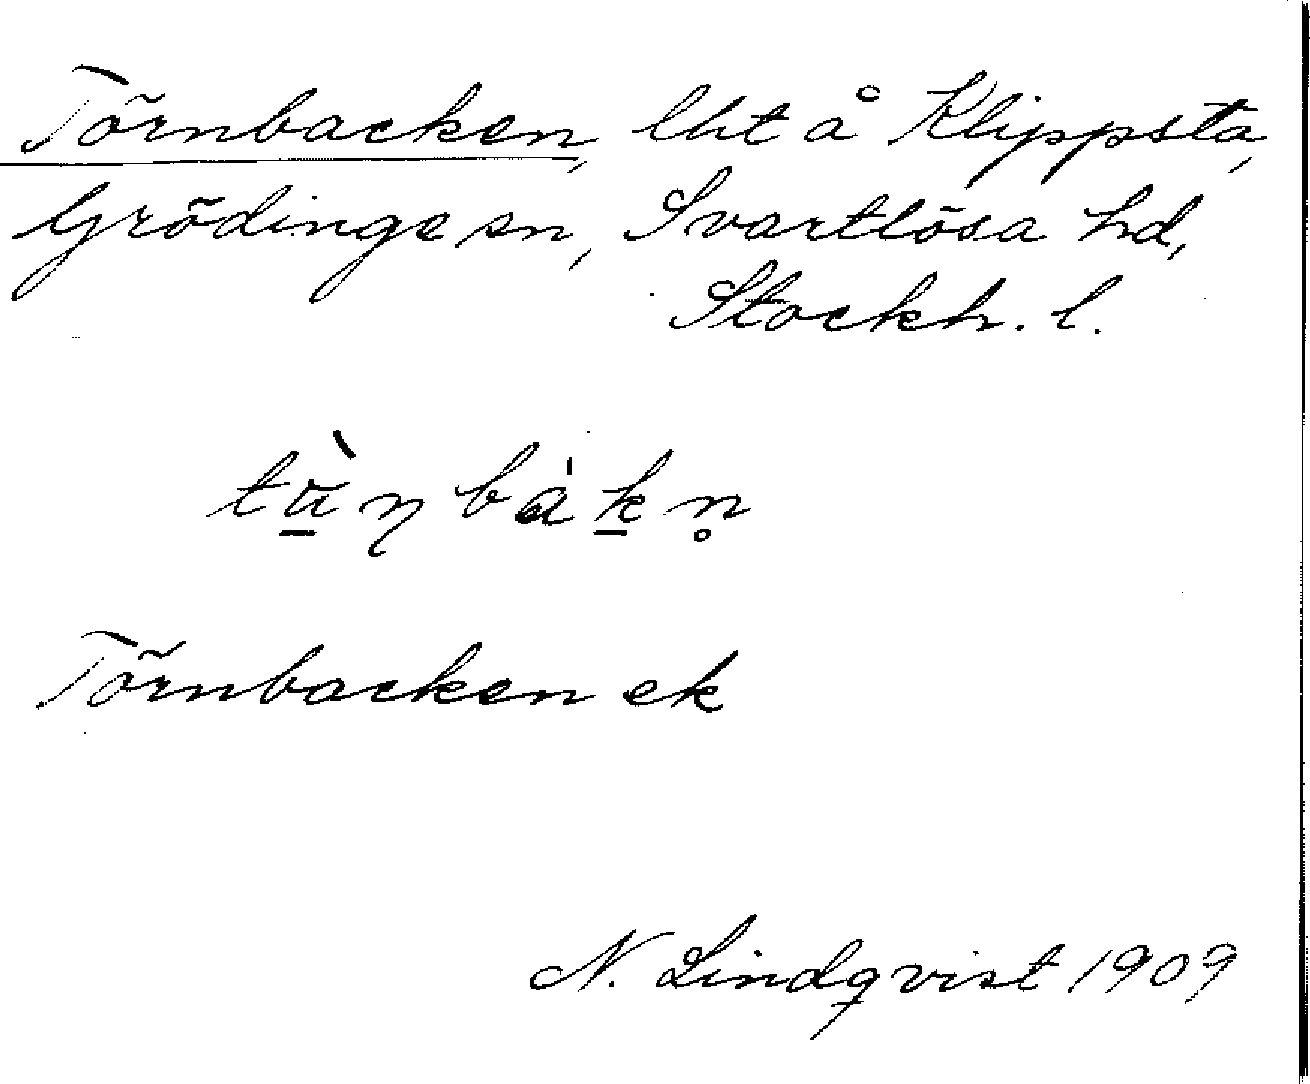 Törnbacken, lht å Klippsta,
Grödinge sn, Svartlösa hd,
Stockh. l.
tù̠ɳbàk̠n̥
Törnbacken ek
N. Lindqvist 1909